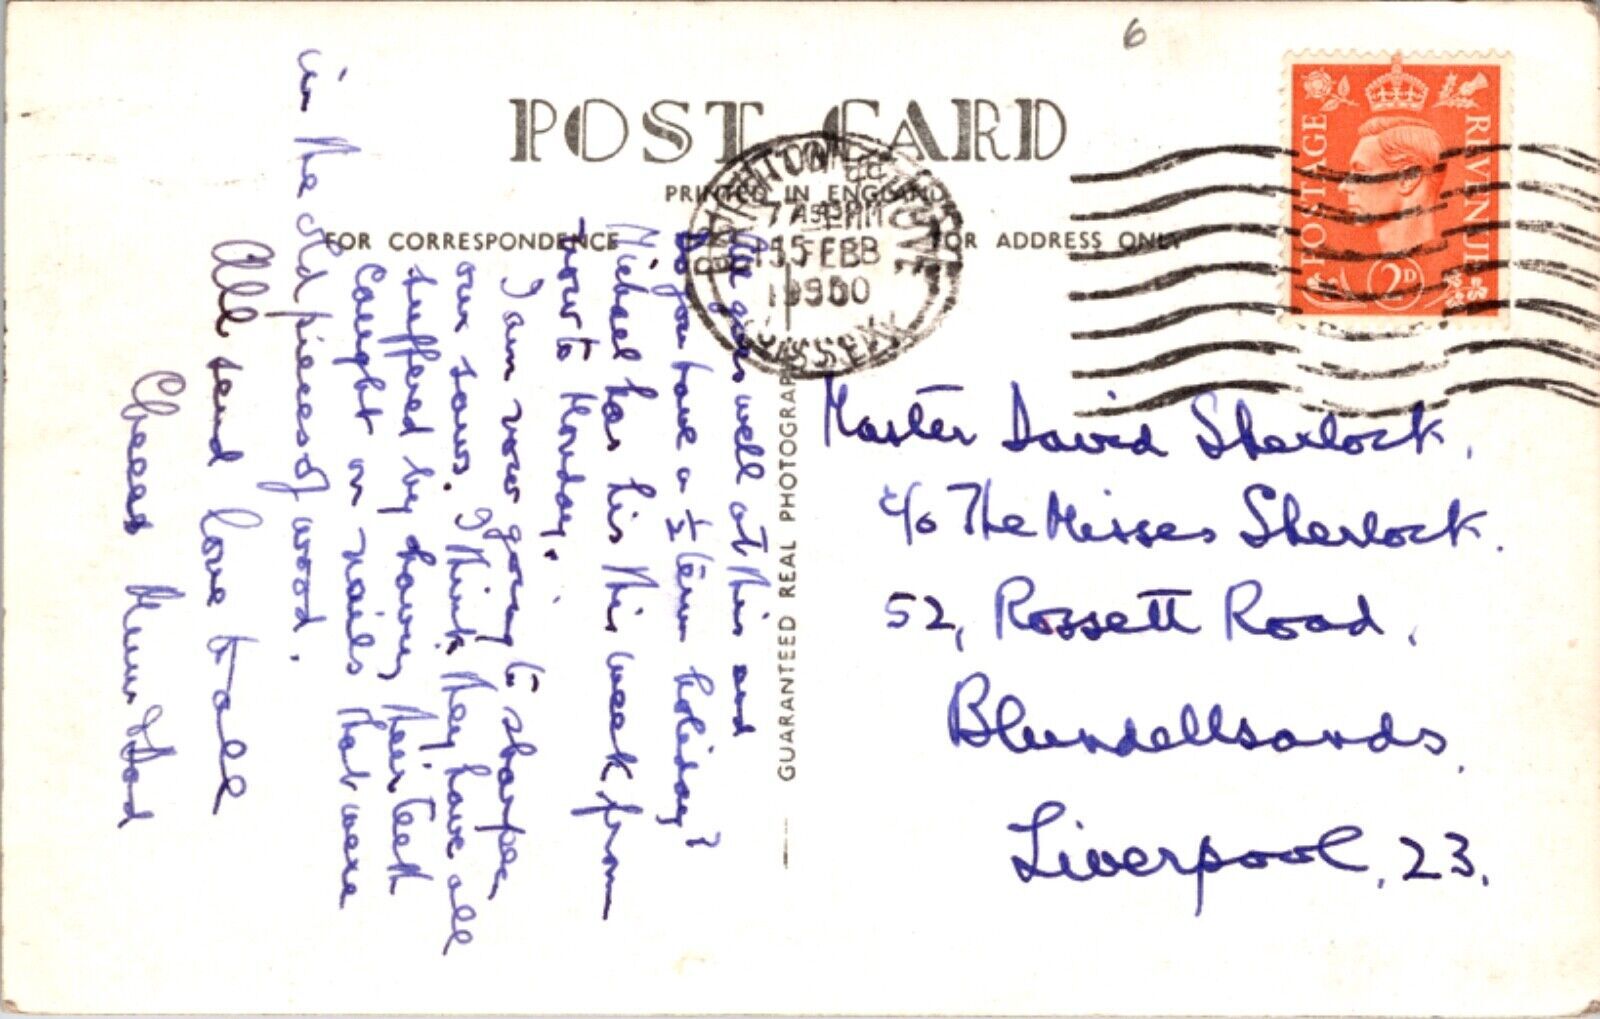 6
POST CARD
PRINTED IN ENGLAND
FOR CORRESPONDENCE
FOR ADDRESS ONLY
POSTAGE
REVENUE
2D
BRIGHTON & HOVE
15 FEB
1950
SUSSEX
GUARANTEED REAL PHOTOGRAPH
All goes well at this end
Do you have a ½ term holiday?
Michael has his this week from
now to Monday.
I am now going to sharpen
our saws. I think they have all
suffered by having their teeth
caught in nails that were
in the old pieces of wood.
All send love to all
Cheers Mum & Dad
Master David Sherlock,
c/o The Misses Sherlock.
52, Rossett Road,
Blundellsands,
Liverpool, 23.